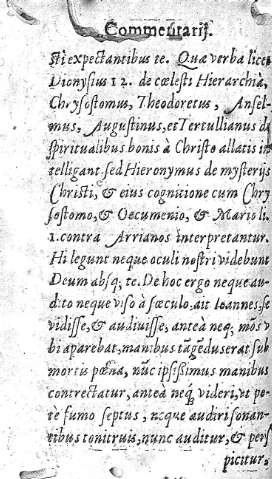 Commentarij.
sti expectantibus te. Quæ verba licet
Dionysius 12. de cœlesti Hierarchia,
Chrysostomus, Theodoretus, Ansel-
mus, Augustinus, et Tertullianus de
spiritualibus bonis à Christo allatis in
telligant sed Hieronymus de mysterijs
Christi, & eius cognitione cum Chry
sostomo, & Oecumenio, & Mario li.
1. contra Arrianos interpretantur.
Hi legunt neque oculi nostri videbunt
Deum absq; te. De hoc ergo neque au-
dito neque viso à sæculo, ait Ioannes, se
vidisse, & audiuisse, anteà neq; mos
bi aparebat, manibus tãgẽdus erat sub
mortis pœna, nũc ipsissimus manibus
contrectatur, anteà neq; videri, vt po-
te fumo septus, neque audiri sonan-
tibus tonitruis, nunc auditur, & pers
picitur,